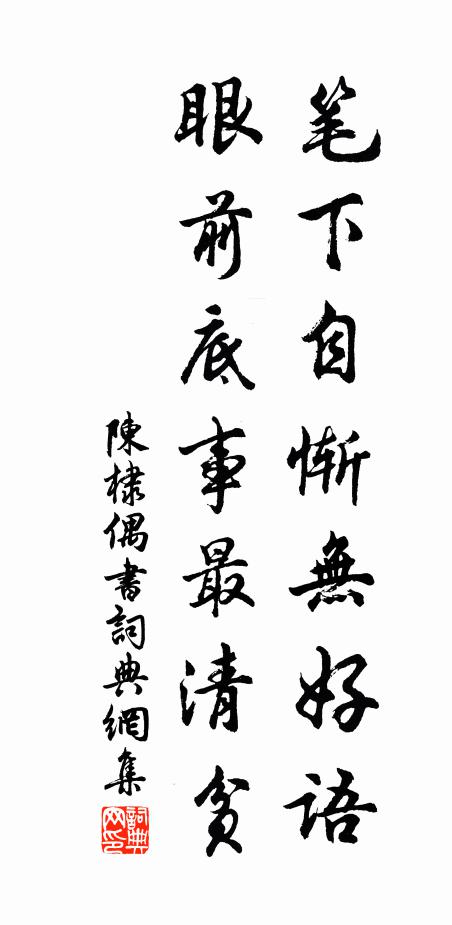 笔下自慚無好語
眼前底事最清貧
陳棣偶書詞典網集
詞典网印